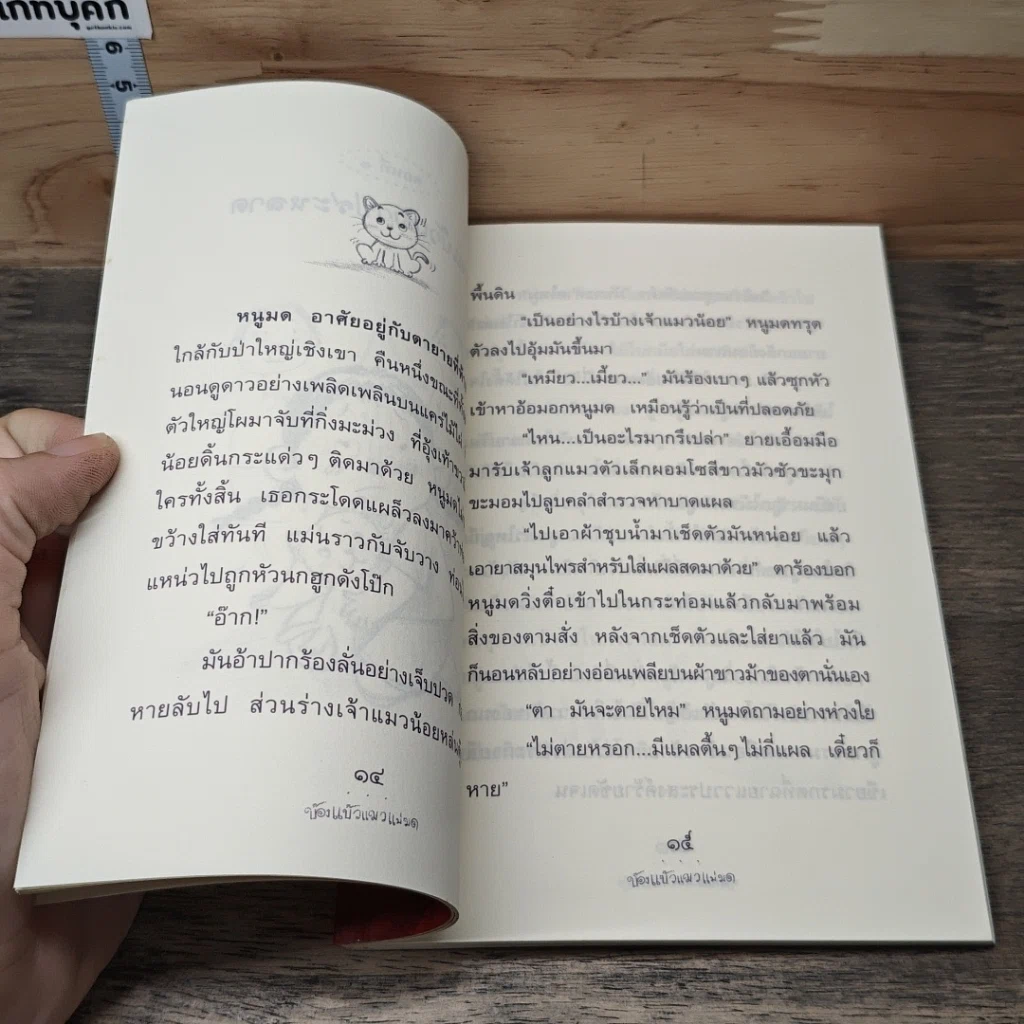 เกทบุคก
6
5
หนูมด อาศัยอยู่กับตายายที่
ใกล้กับป่าใหญ่เชิงเขา คืนหนึ่งขณะที่
นอนดูดาวอย่างเพลิดเพลินบนแคร่ไม้ไผ่
ตัวใหญ่โผมาจับที่กิ่งมะม่วง ที่อุ้งเท้า
น้อยดิ้นกระแด่วๆ ติดมาด้วย หนูมด
ใครทั้งสิ้น เธอกระโดดแผล็วลงมาคว้า
ขว้างใส่ทันที แม่นราวกับจับวาง
แหน่วไปถูกหัวนกฮูกดังโป๊ก
“อ๊าก!”
มันอ้าปากร้องลั่นอย่างเจ็บปวด
หายลับไป ส่วนร่างเจ้าแมวน้อยหล่น
๑๔
พื้นดิน
“เป็นอย่างไรบ้างเจ้าแมวน้อย” หนูมดทรุด
ตัวลงไปอุ้มมันขึ้นมา
“เหมียว...เมี้ยว...” มันร้องเบาๆ แล้วซุกหัว
เข้าหาอ้อมอกหนูมด เหมือนรู้ว่าเป็นที่ปลอดภัย
“ไหน...เป็นอะไรมากรึเปล่า” ยายเอื้อมมือ
มารับเจ้าลูกแมวตัวเล็กผอมโซสีขาวมัวซัวขะมุก
ขะมอมไปลูบคลำสำรวจหาบาดแผล
“ไปเอาผ้าชุบน้ำมาเช็ดตัวมันหน่อย แล้ว
เอายาสมุนไพรสำหรับใส่แผลสดมาด้วย” ตาร้องบอก
หนูมดวิ่งตื๋อเข้าไปในกระท่อมแล้วกลับมาพร้อม
สิ่งของตามสั่ง หลังจากเช็ดตัวและใส่ยาแล้ว มัน
ก็นอนหลับอย่างอ่อนเพลียบนผ้าขาวม้าของตานั่นเอง
“ตา มันจะตายไหม” หนูมดถามอย่างห่วงใย
“ไม่ตายหรอก...มีแผลตื้นๆ ไม่กี่แผล เดี๋ยวก็
หาย”
๑๕